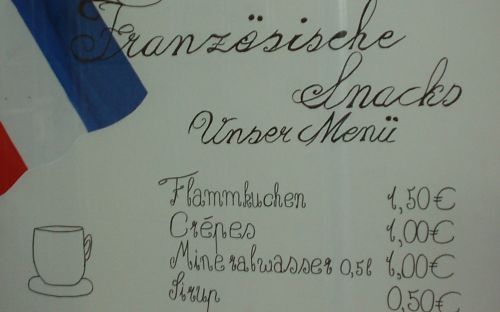 Französische
Snacks
Unser Menü
Flammkuchen 1,50€
Crépes 1,00€
Mineralwasser 0,5l 1,00€
Sirup 0,50€